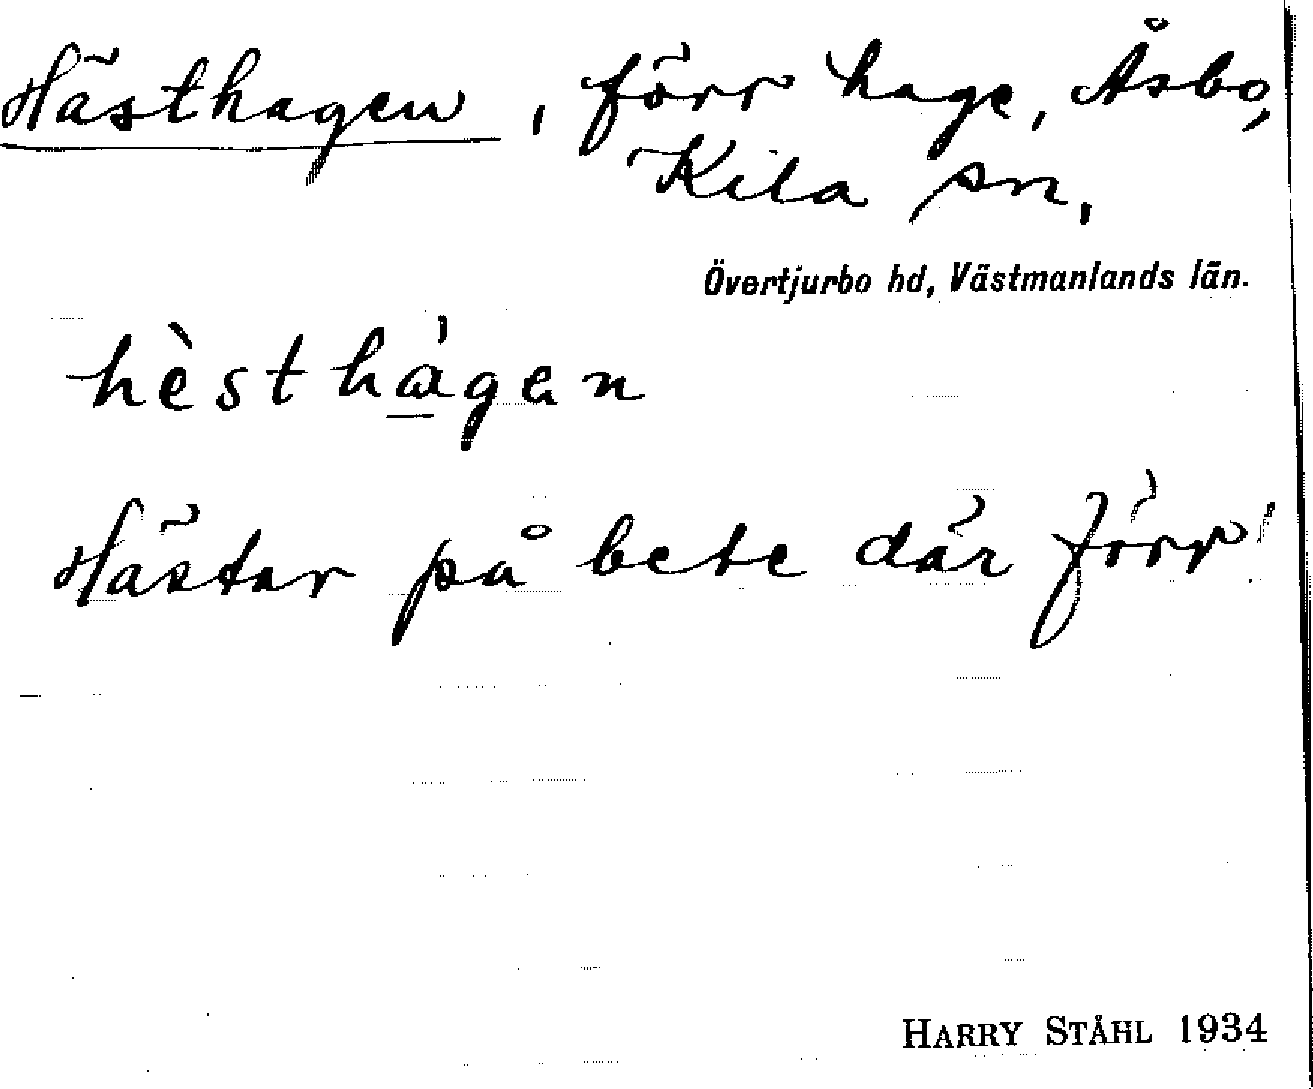 Hästhagen, förr hage, Åsbo,
Kila sn,
Övertjurbo hd, Västmanlands län.
hèsthàgen
Hästar på bete där förr
HARRY STÅHL 1934